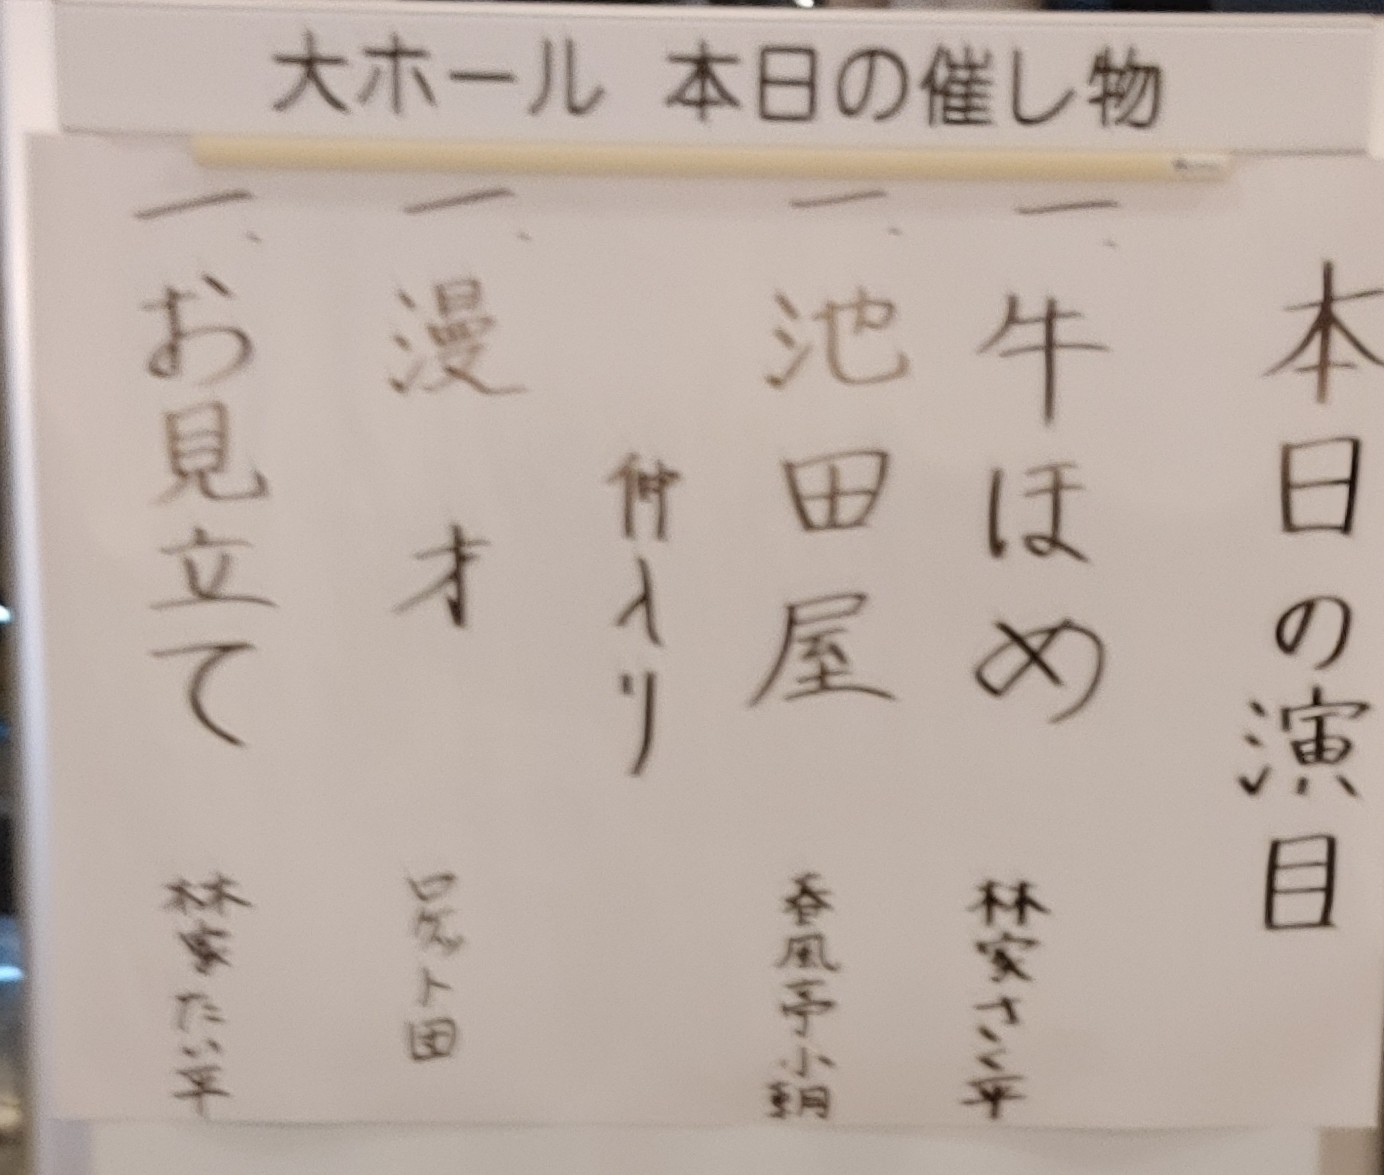 大ホール 本日の催し物
本日の演目
一、牛ほめ 林家さく平
一、池田屋 春風亭小朝
仲入り
一、漫才 ロケット団
一、お見立て 林家たい平